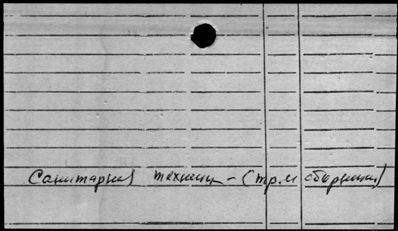 Санитарная техника - (тр. и сборники)